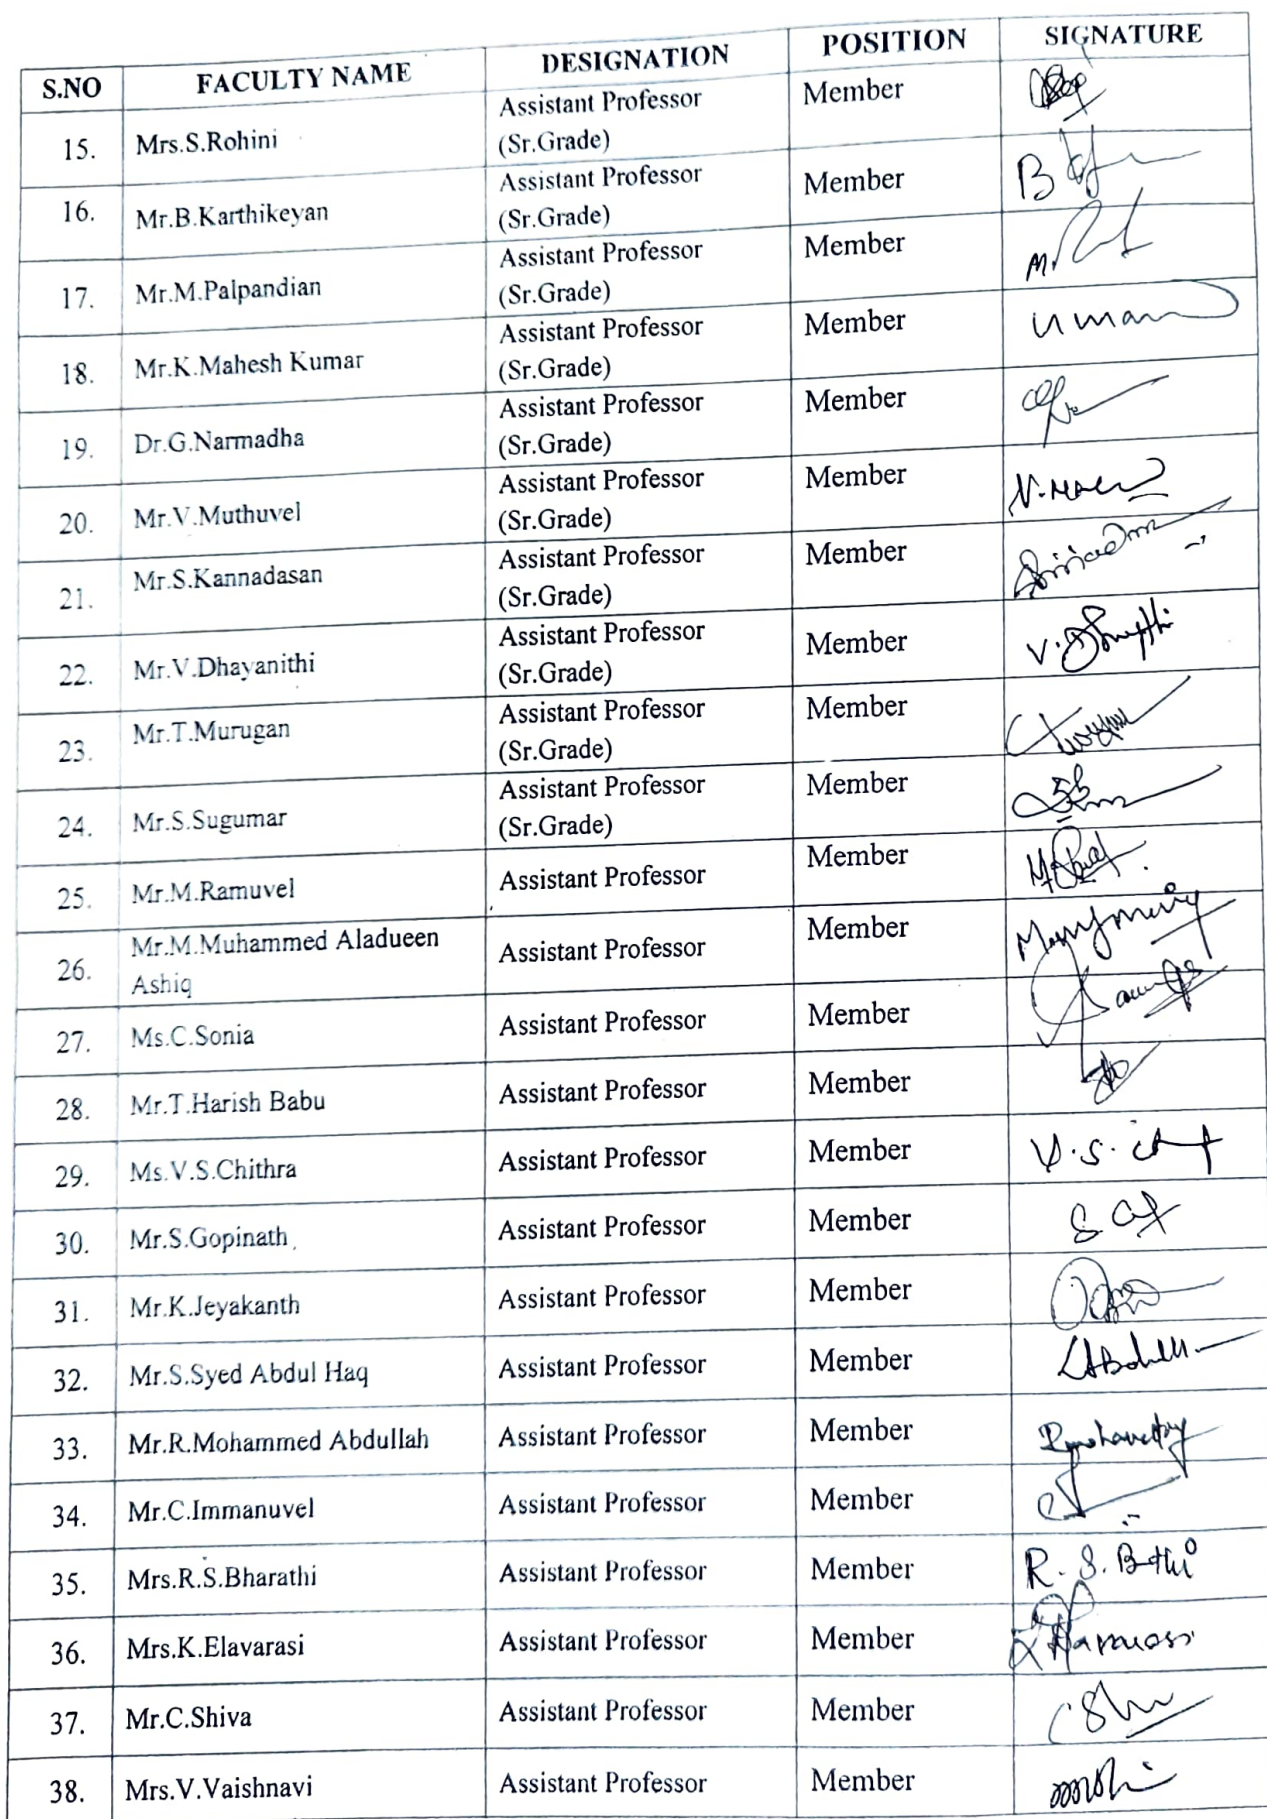 S.NO FACULTY NAME DESIGNATION POSITION SIGNATURE
15. Mrs.S.Rohini Assistant Professor (Sr.Grade) Member
16. Mr.B.Karthikeyan Assistant Professor (Sr.Grade) Member B
17. Mr.M.Palpandian Assistant Professor (Sr.Grade) Member M.
18. Mr.K.Mahesh Kumar Assistant Professor (Sr.Grade) Member
19. Dr.G.Narmadha Assistant Professor (Sr.Grade) Member
20. Mr.V.Muthuvel Assistant Professor (Sr.Grade) Member
21. Mr.S.Kannadasan Assistant Professor (Sr.Grade) Member
22. Mr.V.Dhayanithi Assistant Professor (Sr.Grade) Member
23. Mr.T.Murugan Assistant Professor (Sr.Grade) Member
24. Mr.S.Sugumar Assistant Professor (Sr.Grade) Member
25. Mr.M.Ramuvel Assistant Professor Member
26. Mr.M.Muhammed Aladueen Ashiq Assistant Professor Member
27. Ms.C.Sonia Assistant Professor Member
28. Mr.T.Harish Babu Assistant Professor Member
29. Ms.V.S.Chithra Assistant Professor Member V.S.
30. Mr.S.Gopinath Assistant Professor Member S.
31. Mr.K.Jeyakanth Assistant Professor Member
32. Mr.S.Syed Abdul Haq Assistant Professor Member
33. Mr.R.Mohammed Abdullah Assistant Professor Member
34. Mr.C.Immanuvel Assistant Professor Member
35. Mrs.R.S.Bharathi Assistant Professor Member R.S.
36. Mrs.K.Elavarasi Assistant Professor Member
37. Mr.C.Shiva Assistant Professor Member
38. Mrs.V.Vaishnavi Assistant Professor Member